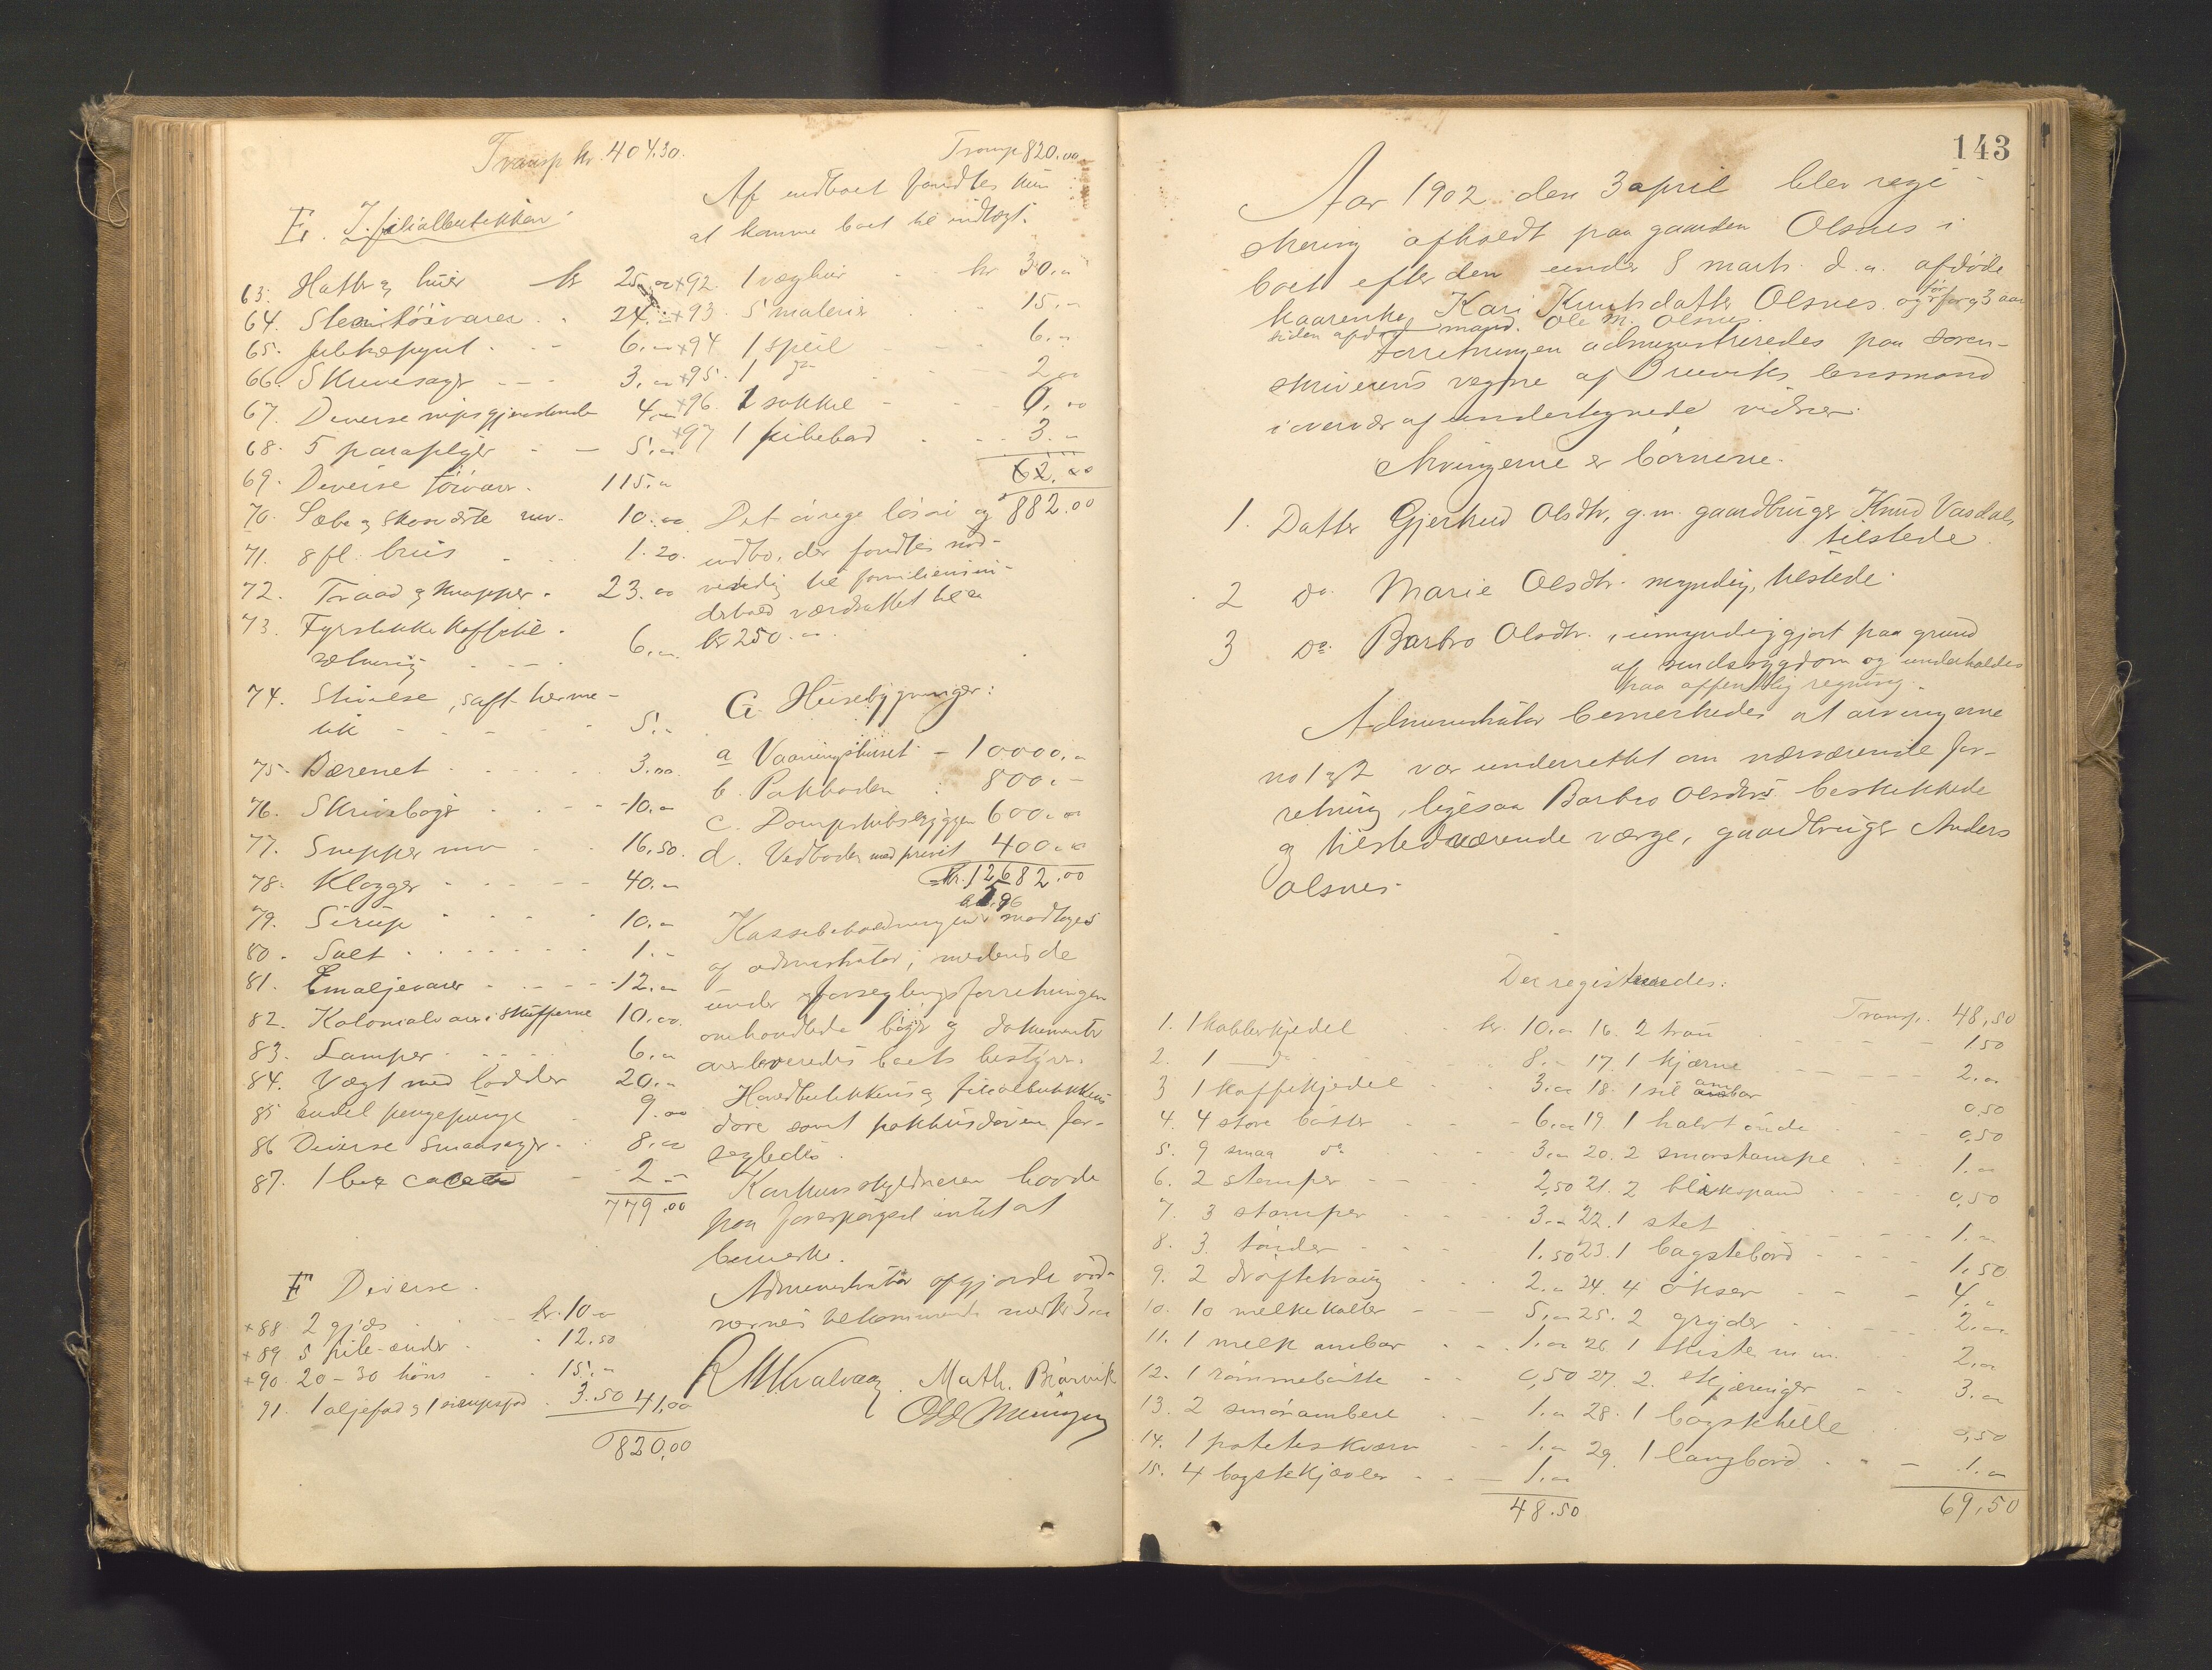 Transp kr. 404.30.
E. I filialbutikken.
63. Hatte og huer kr 25.00
64. Stentöivarer 24.-
65. Juletræpynt 6.-
66. Skruesager 3.-
67. Diverse nipsgjenstande 4.00
68. 5 paraplyer 5.00
69. Diverse töivarer. 115.-
70. Sæbe og Skosværte mv. 10.00
71. 8 fl. brus 1.20.
72. Traad og knapper. 23.00
73. Fyrstikker Kaffetil-
sætning 6.-
74. Stivelse, saft herme-
tik 5.-
75. Bærenet 3.00.
76. Skrivebøger 10.-
77. Snepper mv 16.50.
78. Klogger 40.-
79. Sirup 10.-
80. Salt 1.-
81. Emaljevarer 12.-
82. Kolonialvarer i skufferne 10.00.
83. Lamper 6.-
84. Vægt med lodder 20.-
85 Endel pengepunge 9.00
86 Diverse Smaasager. 8.00
87. 1 box 2.-
779.00
F Diverse.
+88. 2 gjæs kr. 10.-
+89 5 ænder 12.50
+90. 20-30 höns 15.-
91. 1 oljefad og 1 sirupsfad. 3.50 41,00
820,00
Transp 820.00
Af indboet fandtes kun
at komme boet til indtægt.
+92. 1 væghur kr 30.-
+93. 5 malerier 15.-
+94 1 speil 6.-
+95. 1 do 2.00
+96. 1 sokkel 6.00
+97 1 pibebad 3.-
62.00
882.00
Det övrige lösöre og
indbo, der fandtes nöd-
vendig til familiens un-
derhold værdsattes til
kr 250.-.
G. Husebygninger:
a Vaaningshuset - 10000.-
b. Pakboden 800.-
c. Dampskibsbryggen 600.00
d. Vedboden med privet 400.00
Kr. 12682.00
Kassebeholdningen modtoges
af administrator, medens de
under forseglingsforretningen
omhandlede bøger og dokumenter
overleveredes boets bestyrer.
Hovedbutikkens og filialbutikkens
döre samt pakhusdören for-
segledes.
Konkursskyldneren havde
paa forespørgsel intet at
bemerke.
Administrator opgjorde vid-
nernes tilkommende med kr 3.00
R. M. Kvalvaag. Math. Brørvik
143
Aar 1902 den 3 april blev regi-
strering afholdt paa gaarden Olsnes i
boet efter den under 8 marts d. a. afdöde
kaarenke Kari Knutsdatter Olsnes og for 3 aar
siden afdöd mand. Ole M. Olsnes.
Forretningen administreredes paa soren-
skriverens vegne af Bruviks lensmand
i overvær af undertegnede vidner.
Arvingerne er börnene.
1. Datter Gjertrud Olsdtr, g. m. gaardbruger Knud Vasdal,
tilstede.
2 Do. Marie Olsdtr. myndig, tilstede.
3 Do. Barbro Olsdtr., umyndiggjort paa grund
af sindssygdom og underholdes
paa offentlig regning.
Administrator bemerkedes at arvingerne
no 1 og 2 var underrettet om nærværende for-
retning, ligesaa Barbro Olsdtrs beskikkede
og tilstedeværende værge, gaardbruger Anders
Olsnes.
Der registreredes:
1. 1 kobberkjedel kr. 10.-
2. 1 do 8.-
3 1 kaffekjedel 3.00
4. 4 store bötter 6.00
5. 9 smaa do 3.-
6. 2 stamper 2,50
7. 3 stamper 3.-
8. 3 tönder 1.50
9. 2 dröftetraug 2.-
10. 10 melkekoller 5.-
11. 1 melk ambar 1.-
12. 1 römmebötte 0,50
13. 2 smörambere 1.-
14. 1 poteteskværn 1.-
15. 4 bagstekjævler 1.-
48.50
Transp. 48,50
16. 2 trau 1 50
17. 1 kjærne 2.-
18. 1 sil ambar 0,50
19. 1 halvtönde 0,50
20. 2 smörstampe 1.-
21. 2 blikspand 0,50
22. 1 stet 1.-
23. 1 bagstebord 1,50
24. 4 ökser 4.-
25. 2 gryder 2.-
26 1 kiste m m. 2.-
27. 2. skjæringer 3.-
28. 1 bagstehelle 0,50
29. 1 langbord 1.-
69,50